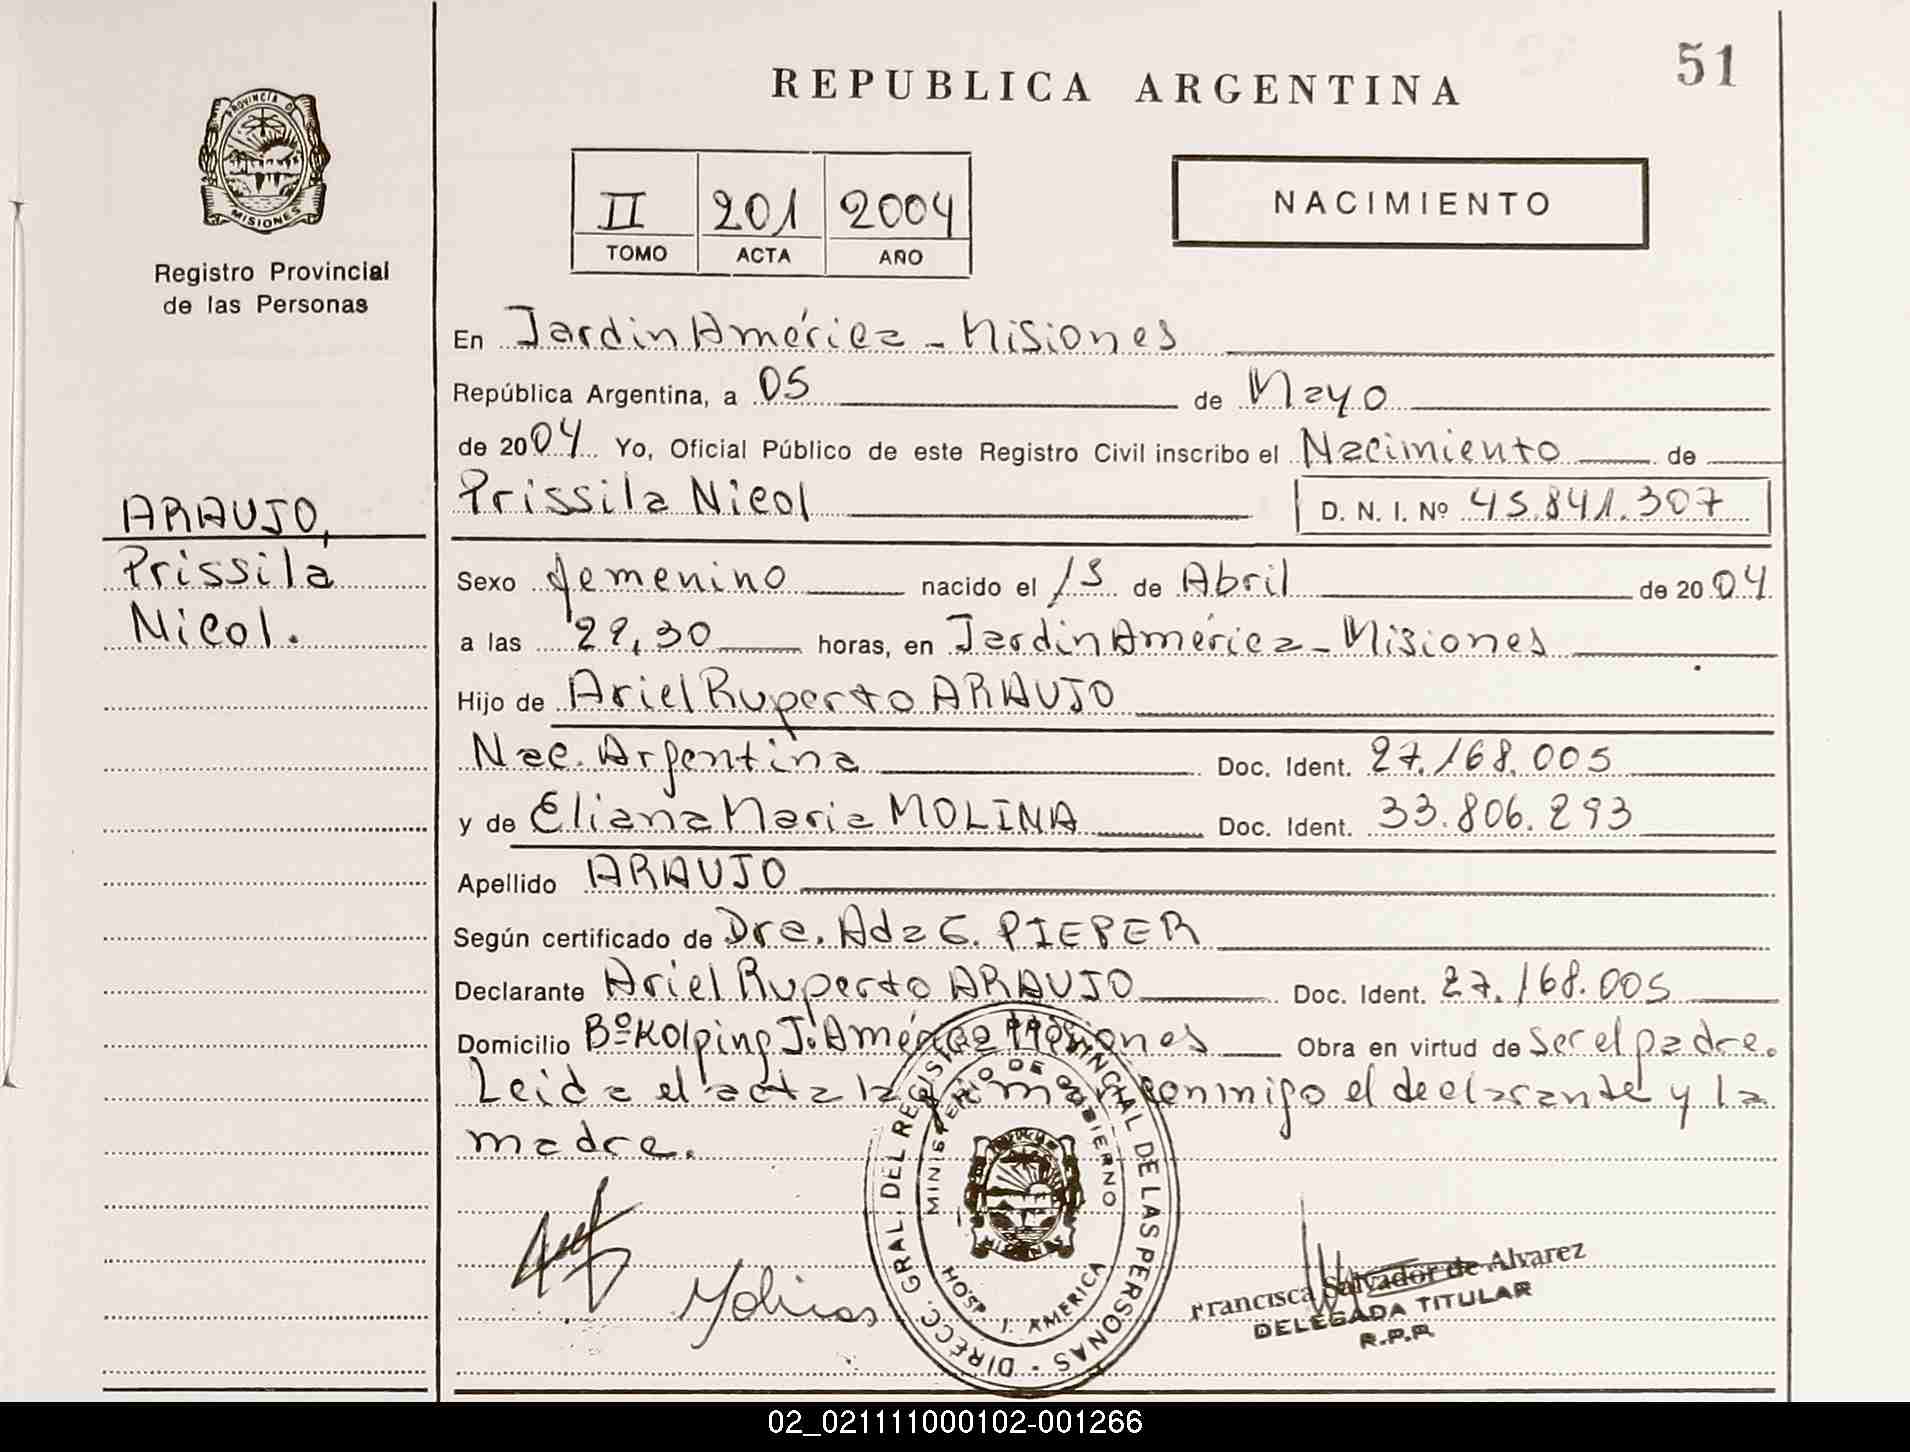 51
REPUBLICA ARGENTINA
PROVINCIA D
MISIONES
Registro Provincial
de las Personas
II 201 2004
TOMO ACTA AÑO
NACIMIENTO
En Jardin América - Misiones
República Argentina, a 05 de Mayo
de 2004 Yo, Oficial Público de este Registro Civil inscribo el Nacimiento de
Prissila Nicol D. N. I. Nº 45.841.307
ARAUJO,
Prissila
Nicol.
Sexo femenino nacido el 13 de Abril de 2004
a las 22,30 horas, en Jardin América - Misiones
Hijo de Ariel Ruperto ARAUJO
Nac. Argentina Doc. Ident. 27.168.005
y de Eliana Maria MOLINA Doc. Ident. 33.806.293
Apellido ARAUJO
Según certificado de Dra. Ada G. PIEPER
Declarante Ariel Ruperto ARAUJO Doc. Ident. 27.168.005
Domicilio Bº Kolping J. América Misiones Obra en virtud de ser el padre.
Leida el acta la firman conmigo el declarante y la
madre.
DIRECC. GRAL. DEL REGISTRO PROVINCIAL DE LAS PERSONAS
MINISTERIO DE GOBIERNO
MISIONES
HOSP. J. AMERICA
Francisca Salvador de Alvarez
DELEGADA TITULAR
R.P.P.
02_021111000102-001266